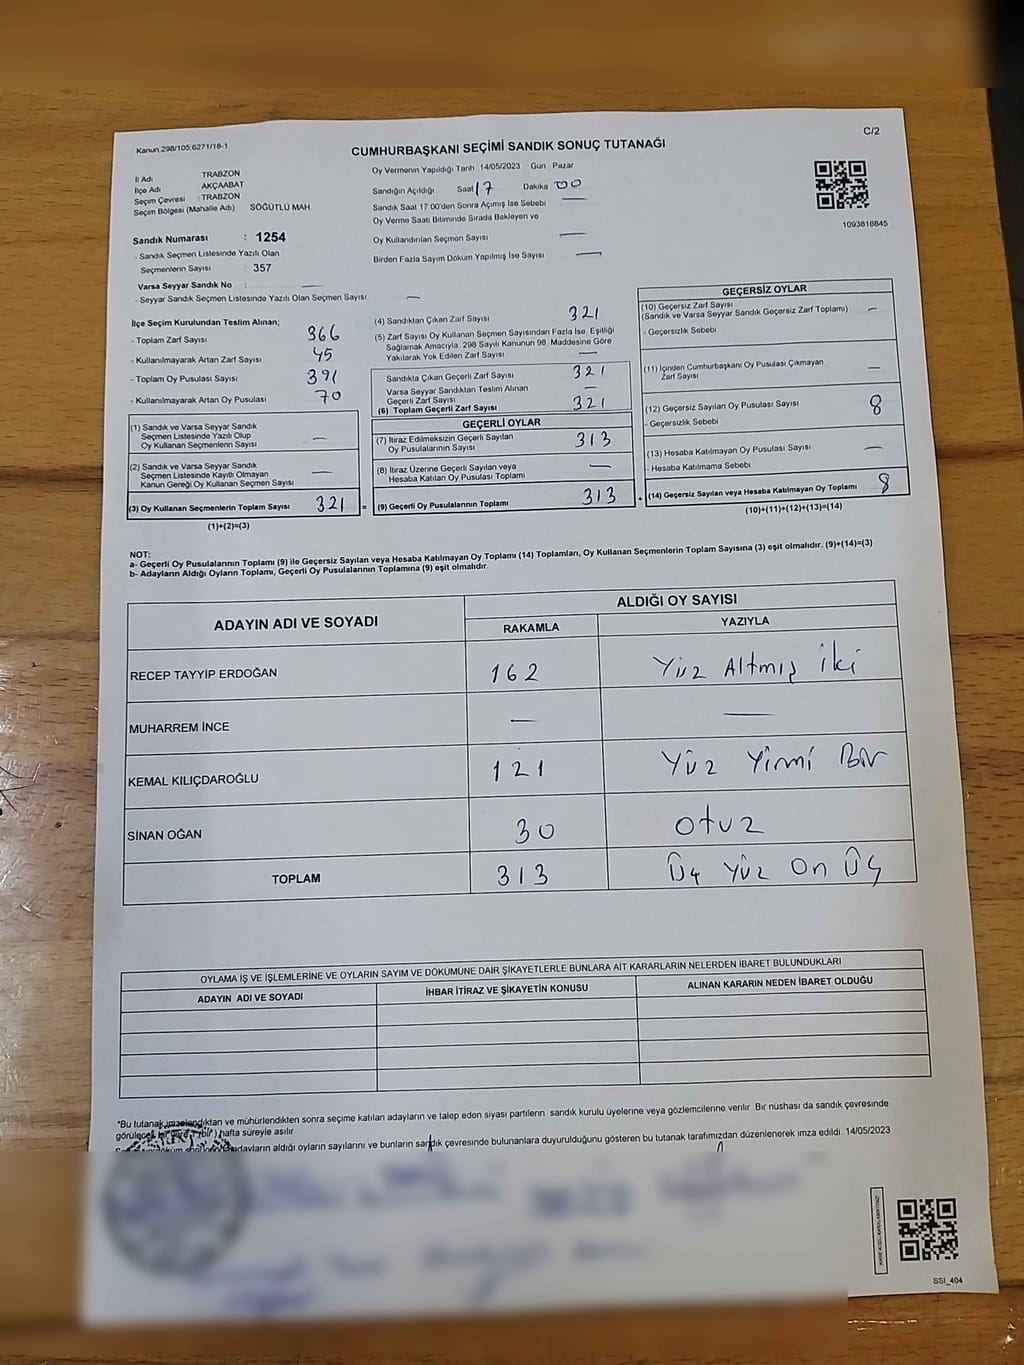 Kanun.298/105,6271/18-1
C/2
CUMHURBAŞKANI SEÇİMİ SANDIK SONUÇ TUTANAĞI
İl Adı TRABZON
İlçe Adı AKÇAABAT
Seçim Çevresi : TRABZON
Seçim Bölgesi (Mahalle Adı) SÖĞÜTLÜ MAH
Oy Vermenin Yapıldığı Tarih 14/05/2023 Gün Pazar
Sandığın Açıldığı Saat 17 Dakika 00
Sandık Saat 17 00'den Sonra Açımış İse Sebebi —
Oy Verme Saati Bitiminde Sırada Bekleyen ve
Oy Kullandırılan Seçmen Sayısı —
Birden Fazla Sayım Döküm Yapılmış İse Sayısı —
1093818845
Sandık Numarası : 1254
- Sandık Seçmen Listesinde Yazılı Olan
Seçmenlerin Sayısı 357
Varsa Seyyar Sandık No : —
- Seyyar Sandık Seçmen Listesinde Yazılı Olan Seçmen Sayısı —
İlçe Seçim Kurulundan Teslim Alınan;
- Toplam Zarf Sayısı 366
- Kullanılmayarak Artan Zarf Sayısı 45
- Toplam Oy Pusulası Sayısı 391
- Kullanılmayarak Artan Oy Pusulası 70
(1) Sandık ve Varsa Seyyar Sandık
Seçmen Listesinde Yazılı Olup
Oy Kullanan Seçmenlerin Sayısı —
(2) Sandık ve Varsa Seyyar Sandık
Seçmen Listesinde Kayıtlı Olmayan
Kanun Gereği Oy Kullanan Seçmen Sayısı —
(3) Oy Kullanan Seçmenlerin Toplam Sayısı 321 =
(1)+(2)=(3)
(4) Sandıktan Çıkan Zarf Sayısı 321
(5) Zarf Sayısı Oy Kullanan Seçmen Sayısından Fazla İse, Eşitliği
Sağlamak Amacıyla, 298 Sayılı Kanunun 98. Maddesine Göre
Yakılarak Yok Edilen Zarf Sayısı —
Sandıkta Çıkan Geçerli Zarf Sayısı 321
Varsa Seyyar Sandıktan Teslim Alınan
Geçerli Zarf Sayısı —
(6) Toplam Geçerli Zarf Sayısı 321
GEÇERLİ OYLAR
(7) İtiraz Edilmeksizin Geçerli Sayılan
Oy Pusulalarının Sayısı 313
(8) İtiraz Üzerine Geçerli Sayılan veya
Hesaba Katılan Oy Pusulası Toplamı —
(9) Geçerli Oy Pusulalarının Toplamı 313 +
GEÇERSİZ OYLAR
(10) Geçersiz Zarf Sayısı
(Sandık ve Varsa Seyyar Sandık Geçersiz Zarf Toplamı) —
- Geçersizlik Sebebi
(11) İçinden Cumhurbaşkanı Oy Pusulası Çıkmayan
Zarf Sayısı —
(12) Geçersiz Sayılan Oy Pusulası Sayısı 8
- Geçersizlik Sebebi
(13) Hesaba Katılmayan Oy Pusulası Sayısı —
- Hesaba Katılmama Sebebi
(14) Geçersiz Sayılan veya Hesaba Katılmayan Oy Toplamı 8
(10)+(11)+(12)+(13)=(14)
NOT:
a- Geçerli Oy Pusulalarının Toplamı (9) ile Geçersiz Sayılan veya Hesaba Katılmayan Oy Toplamı (14) Toplamları, Oy Kullanan Seçmenlerin Toplam Sayısına (3) eşit olmalıdır. (9)+(14)=(3)
b- Adayların Aldığı Oyların Toplamı, Geçerli Oy Pusulalarının Toplamına (9) eşit olmalıdır
ADAYIN ADI VE SOYADI
ALDIĞI OY SAYISI
RAKAMLA YAZIYLA
RECEP TAYYİP ERDOĞAN 162 Yüz Altmış iki
MUHARREM İNCE — —
KEMAL KILIÇDAROĞLU 121 Yüz Yirmi Bir
SİNAN OĞAN 30 Otuz
TOPLAM 313 Üç Yüz On Üç
OYLAMA İŞ VE İŞLEMLERİNE VE OYLARIN SAYIM VE DÖKÜMÜNE DAİR ŞİKAYETLERLE BUNLARA AİT KARARLARIN NELERDEN İBARET BULUNDUKLARI
ADAYIN ADI VE SOYADI İHBAR İTİRAZ VE ŞİKAYETİN KONUSU ALINAN KARARIN NEDEN İBARET OLDUĞU
*Bu tutanak imzalandıktan ve mühürlendikten sonra seçime katılan adayların ve talep eden siyasi partilerin sandık kurulu üyelerine veya gözlemcilerine verilir. Bir nüshası da sandık çevresinde
görülecek bir yere (bir) hafta süreyle asılır
adayların aldığı oyların sayılarını ve bunların sandık çevresinde bulunanlara duyurulduğunu gösteren bu tutanak tarafımızdan düzenlenerek imza edildi. 14/05/2023
SSI_404